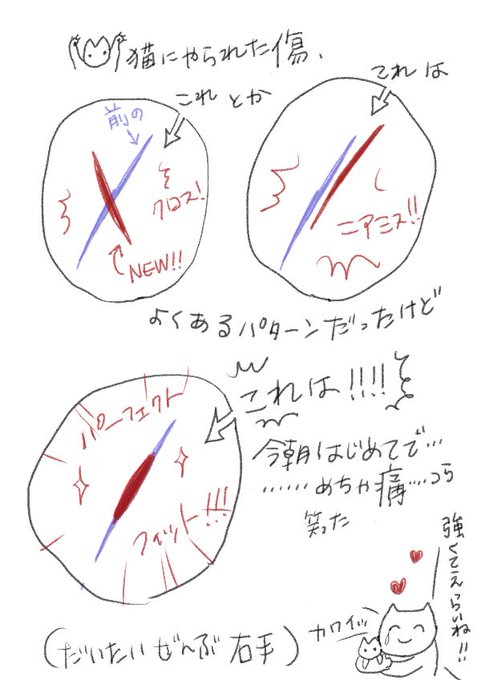 猫にやられた傷、
これ とか
前の
クロス!
NEW!!
これは
ニアミス!!
よくあるパターンだったけど
これは!!!!
パーフェクト
フィット!!!
今朝はじめてで…
……めちゃ痛…つら
笑った
(だいたいぜんぶ右手)
カワイイッ
強くてえらいね!!